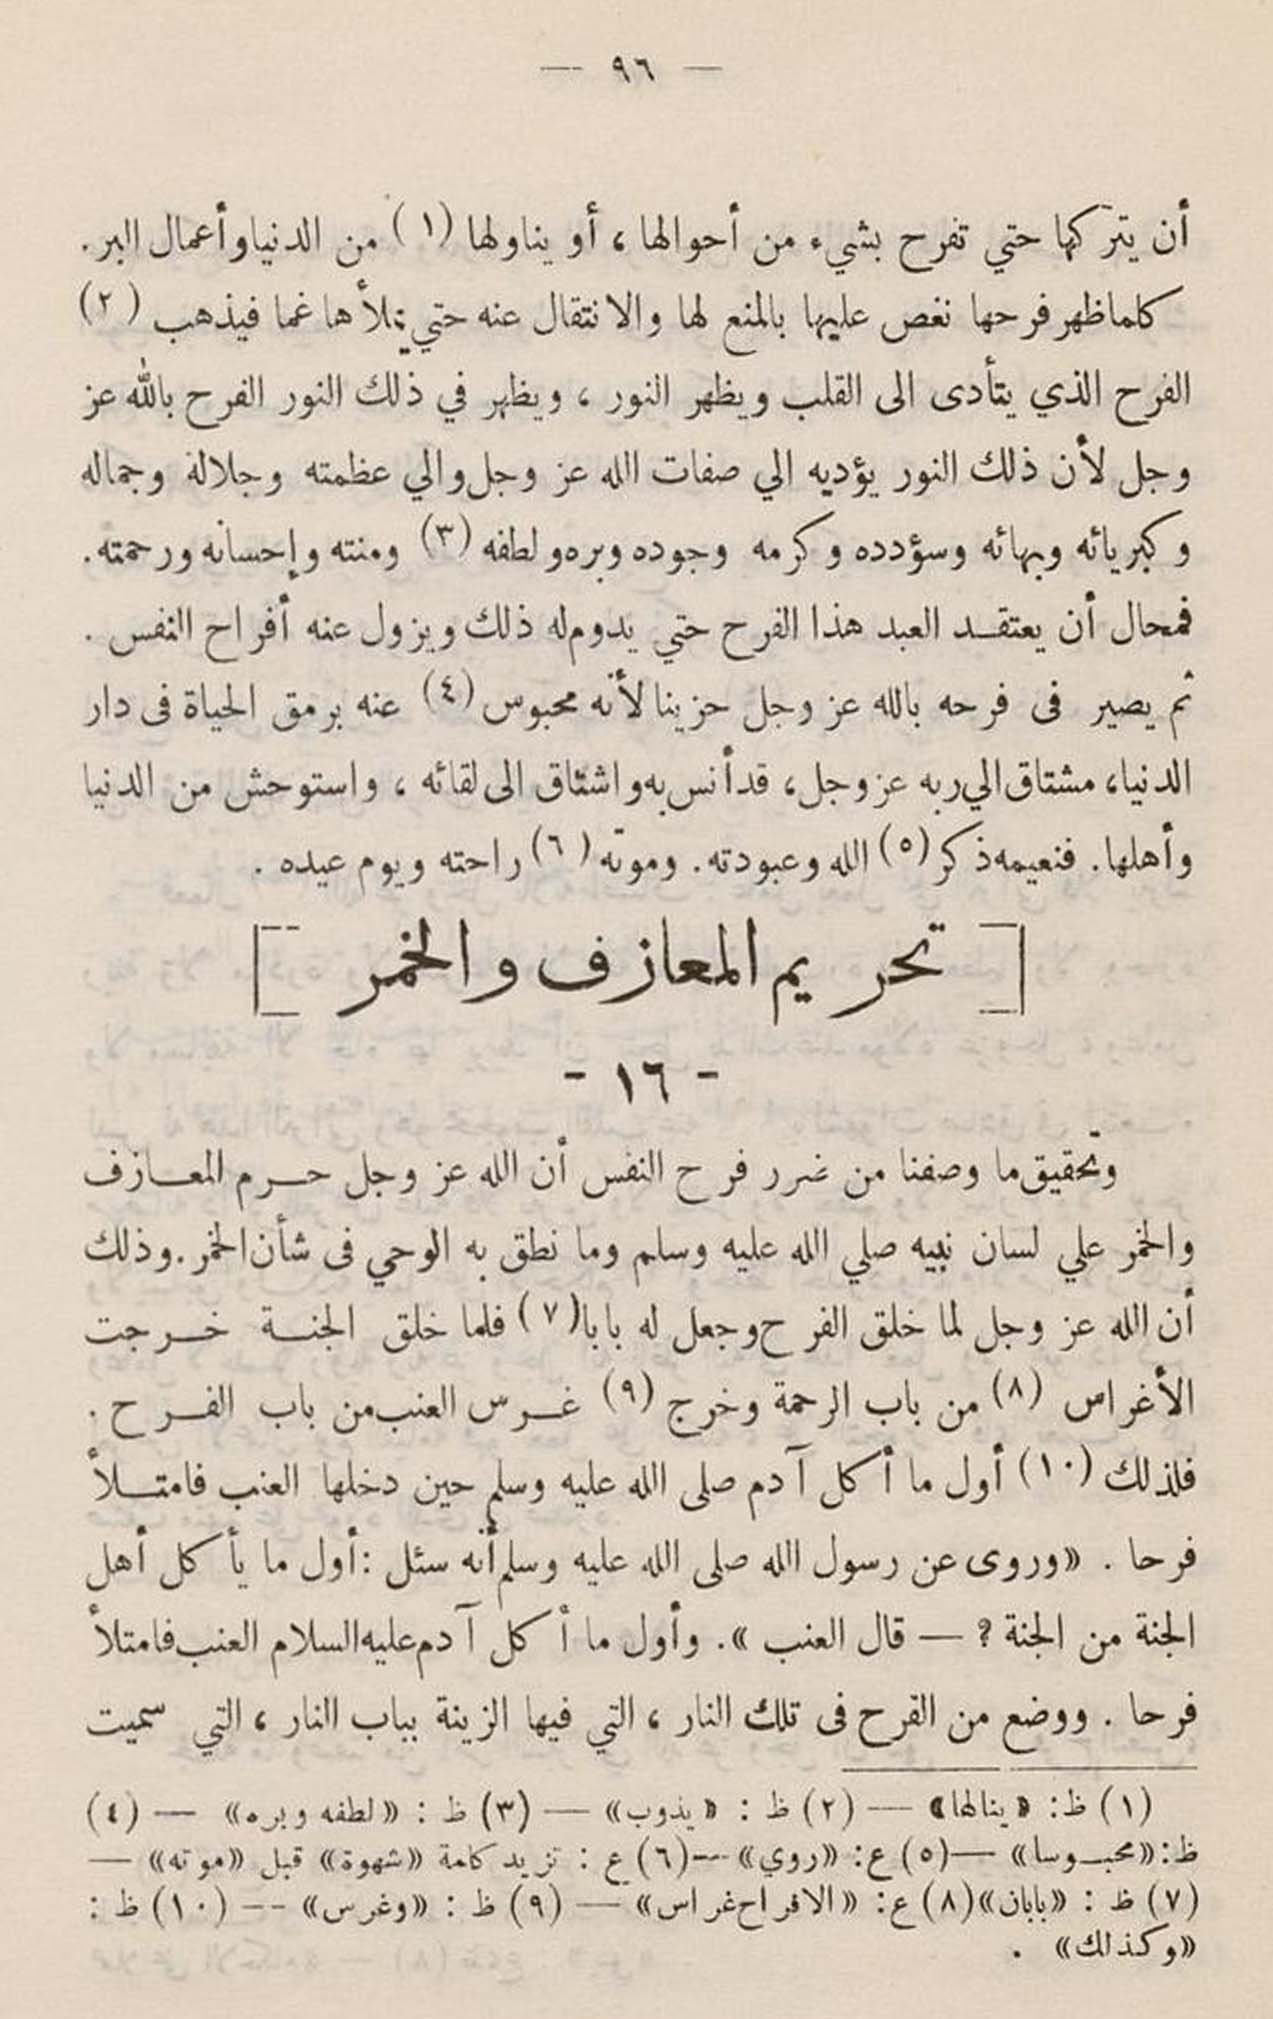 — ٩٦ —
أن يتركها حتي تفرح بشيء من أحوالها ، أو يناولها (١) من الدنيا وأعمال البر .
كلما ظهر فرحها نغص عليها بالمنع لها والانتقال عنه حتي يملأها غما فيذهب (٢)
الفرح الذي يتأدى الى القلب ويظهر النور ، ويظهر في ذلك النور الفرح بالله عز
وجل لأن ذلك النور يؤديه الي صفات الله عز وجل والي عظمته وجلالة وجماله
وكبريائه وبهائه وسؤدده وكرمه وجوده وبره ولطفه (٣) ومنته وإحسانه ورحمته .
فمحال أن يعتقد العبد هذا الفرح حتي يدوم له ذلك ويزول عنه أفراح النفس .
ثم يصير فى فرحه بالله عز وجل حزينا لأنه محبوس (٤) عنه برمق الحياة فى دار
الدنيا، مشتاق الي ربه عز وجل ، قد أنس به واشتاق الى لقائه ، واستوحش من الدنيا
وأهلها . فنعيمه ذكر (٥) الله وعبودته . وموته (٦) راحته ويوم عيده .
[ تحريم المعازف والخمر ]
- ١٦ -
وتحقيق ما وصفنا من غرر فرح النفس أن الله عز وجل حرم المعازف
والخمر علي لسان نبيه صلي الله عليه وسلم وما نطق به الوحي فى شأن الخمر . وذلك
أن الله عز وجل لما خلق الفرح وجعل له بابا (٧) فلما خلق الجنة خرجت
الأغراس (٨) من باب الرحمة وخرج (٩) غرس العنب من باب الفرح .
فلذلك (١٠) أول ما أكل آدم صلى الله عليه وسلم حين دخلها العنب فامتلأ
فرحا . «وروى عن رسول الله صلى الله عليه وسلم أنه سئل : أول ما يأكل أهل
الجنة من الجنة ? — قال العنب » . وأول ما أكل آدم عليه السلام العنب فامتلأ
فرحا . ووضع من الفرح فى تلك النار ، التي فيها الزينة بباب النار ، التي سميت
(١) ظ: «ينالها» — (٢) ظ : «يذوب» — (٣) ظ : «لطفه وبره» — (٤)
ظ: «محبوسا» — (٥) ع: «روي» — (٦) ع : تزيد كلمة «شهوة» قبل «موته» —
(٧) ظ : «بابان» (٨) ع: «الافراح غراس» — (٩) ظ : «وغرس» — (١٠) ظ :
«وكذلك» .